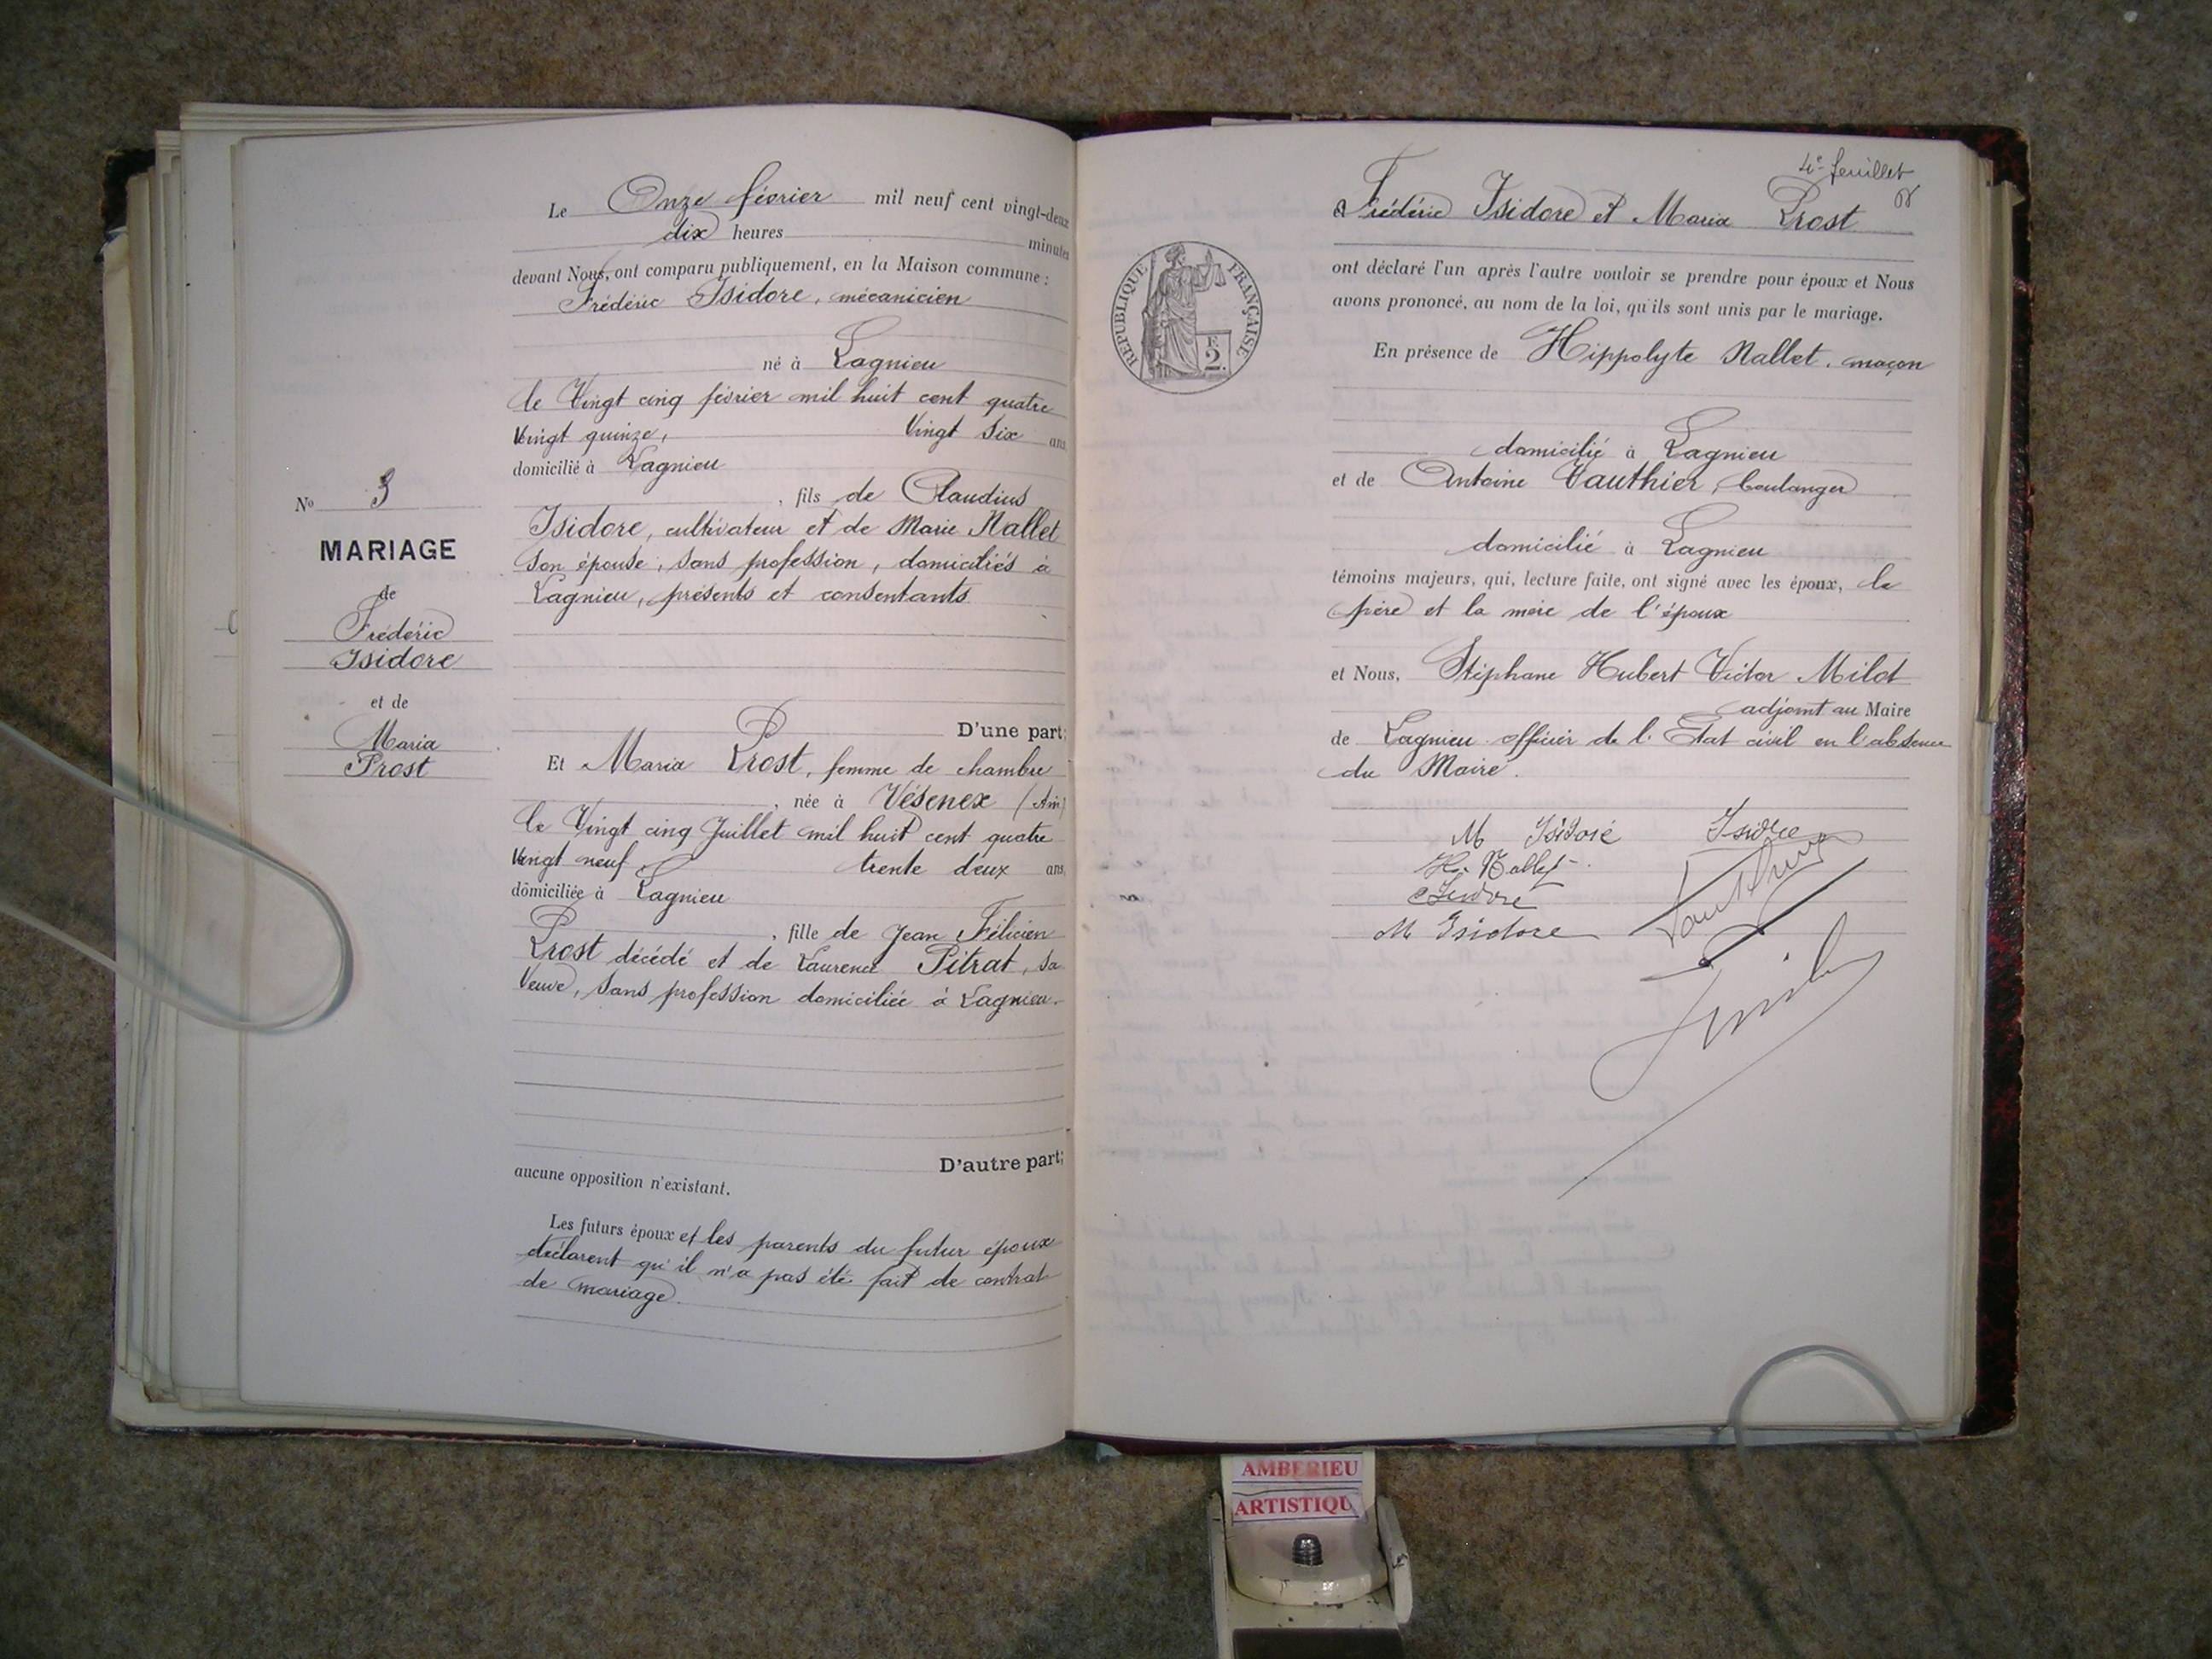 Le Onze février mil neuf cent vingt-deux
dix heures minutes
devant Nous, ont comparu publiquement, en la Maison commune :
Frédéric Isidore, mécanicien
né à Lagnieu
le Vingt cinq février mil huit cent quatre
Vingt quinze, Vingt Six ans
domicilié à Lagnieu
, fils de Claudius
Isidore, cultivateur et de Marie Nallet
Son épouse, sans profession, domiciliés à
Lagnieu, présents et consentants
D'une part;
Et Maria Prost, femme de chambre
, née à Vésenex (Ain)
le Vingt cinq Juillet mil huit cent quatre
Vingt neuf, trente deux ans,
domiciliée à Lagnieu
, fille de Jean Félicien
Prost décédé et de Laurence Pitrat, sa
Veuve, sans profession domiciliée à Lagnieu.
D'autre part;
aucune opposition n'existant.
Les futurs époux et les parents du futur époux
déclarent qu'il n'a pas été fait de contrat
de mariage.
No 3
MARIAGE
de
Frédéric
Isidore
et de
Maria
Prost
4e feuillet
Frédéric Isidore et Maria Prost
RÉPUBLIQUE FRANÇAISE
F.
2.
ont déclaré l'un après l'autre vouloir se prendre pour époux et Nous
avons prononcé, au nom de la loi, qu'ils sont unis par le mariage.
En présence de Hippolyte Nallet, maçon
domicilié à Lagnieu
et de Antoine Vauthier, boulanger
domicilié à Lagnieu
témoins majeurs, qui, lecture faite, ont signé avec les époux, le
père et la mère de l'époux
et Nous, Stéphane Hubert Victor Milot
adjoint au Maire
de Lagnieu officier de l'Etat civil en l'absence
du Maire.
M Isidore Isidore
H. Nallet
Isidore Vauthier
M Isidore
AMBERIEU
ARTISTIQU